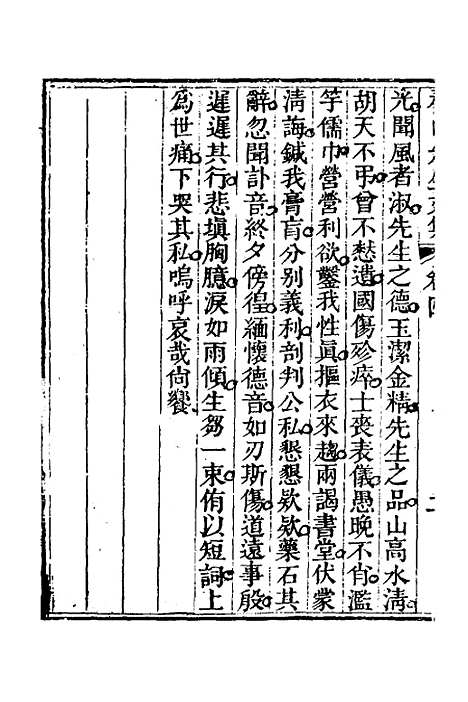 光聞風者淑先生之德玉潔金精先生之品山高水清
胡天不弔曾不憖遺國傷殄瘁士喪表儀愚晚不肖濫
竽儒巾營營利欲鑿我性眞摳衣來趨兩謁書堂伏蒙
淸誨鍼我膏肓分别義利剖判公私懇懇欵欵藥石其
辭忽聞訃音終夕傍徨緬懷德音如刃斯傷道遠事殷
遲遲其行悲塡胸臆淚如雨傾生芻一束侑以短詞上
爲世痛下哭其私嗚呼哀哉尙饗